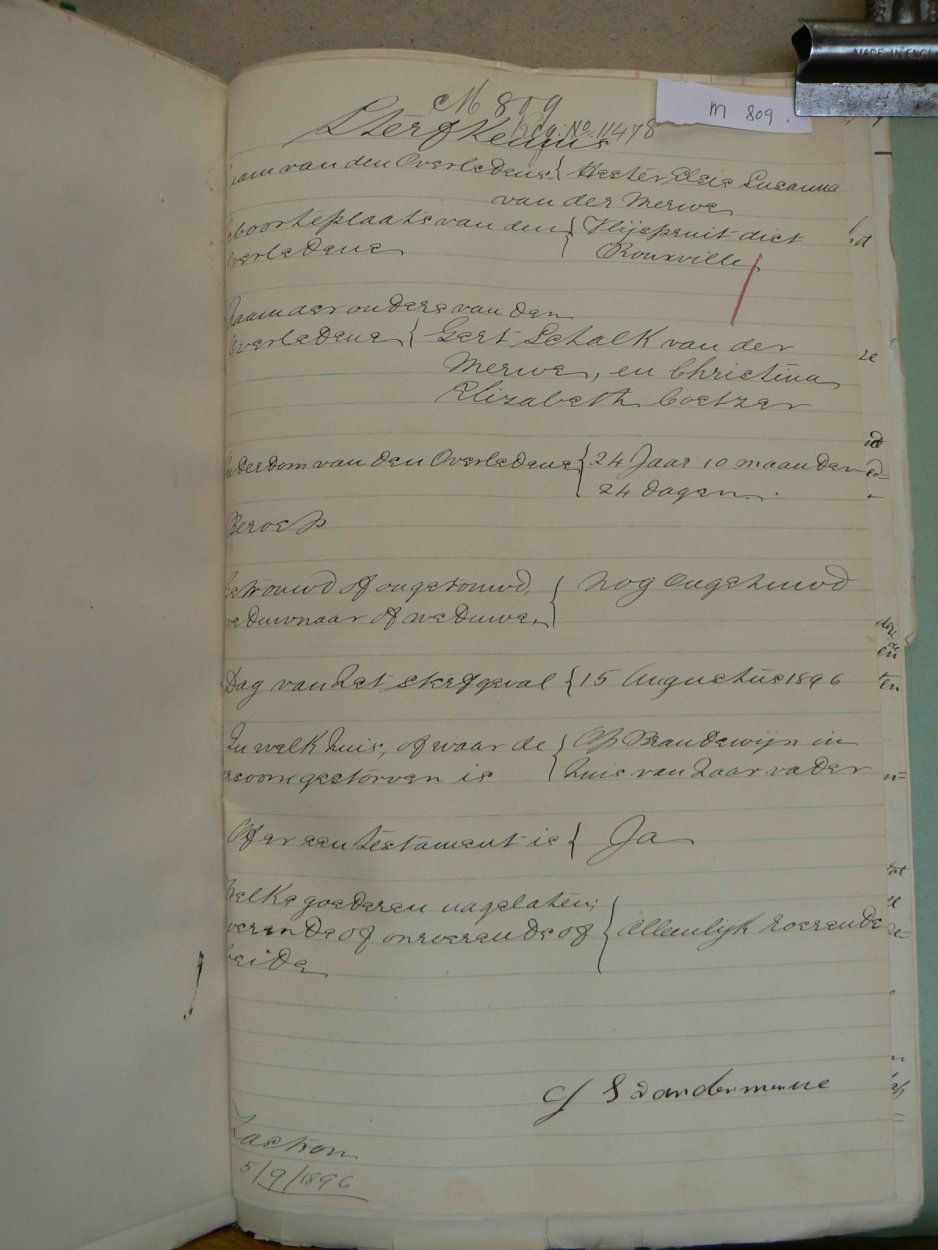 MADE IN ENGL
M 809
M 809.
Reg. No. 11478
Sterfkennis
aam van den Overledene { Hester Elsie Susanna
van der Merwe
eboorteplaats van den { Vlijspruit dist
verledene Rouxville
Naam der ouders van den
Overledene { Gert Schalk van der
Merwe, en Christina
Elizabeth Coetzer
uderdom van den Overledene { 24 Jaar 10 maanden
24 dagen.
Beroep
Getrouwd of ongetrouwd, { Nog Ongehuwd
weduwnaar of weduwe,
Dag van het sterfgeval { 15 Augustus 1896
In welk huis, of waar de { Op Brandewijn in
ersoon gestorven is huis van haar vader
Of er een testament is { Ja
Welke goederen nagelaten;
oerende of onroerende of { Alleenlijk roerende
beide
G S vandermerwe
Zastron
5/9/1896